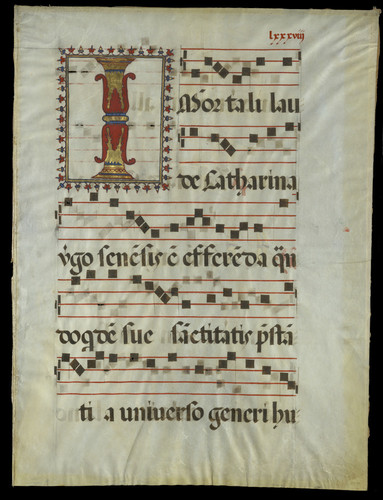 lxxxviij
I mor tali lau
de Catharina
v̄go senēsis ē efferēda qn̄
doqdē sue sāctitatis p̄stā
ti a a universo generi hu